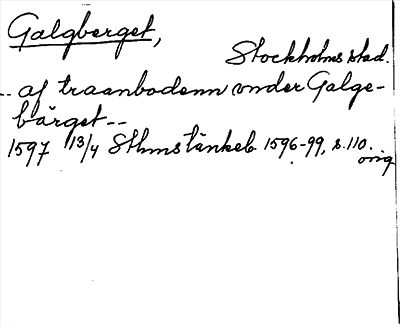 Galgberget,
Stockholms stad.
-- af traanbodenn vnder Galge-
bärget --
1597 13/4 Sthms tänkeb. 1596-99, s. 110.
orig